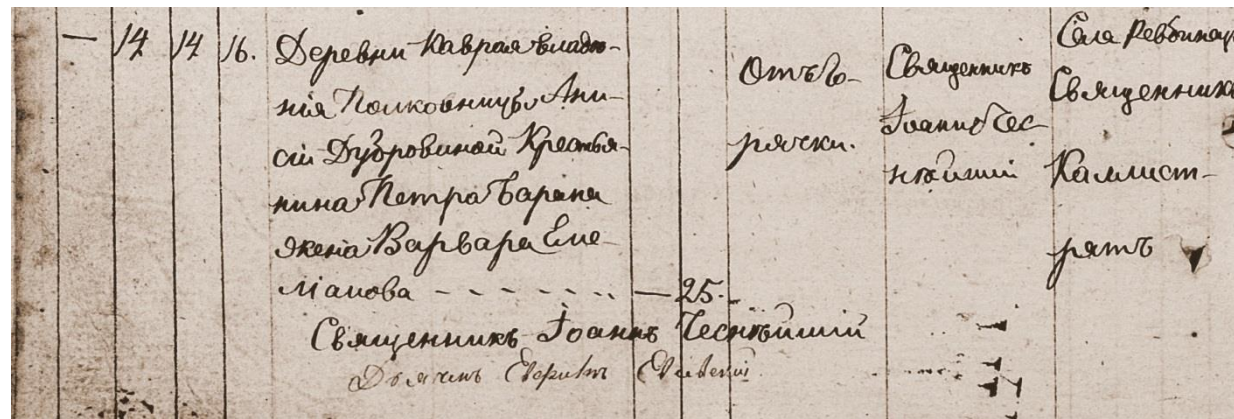 — 14 14 16. Деревни Каврая владѣ-
нія Полковницы Ани-
сіи Дубровиной Крестья-
нина Петра Барана
жена Варвара Еме-
ліанова - - - - - - — 25.
Отъ го-
рячки.
Священникъ
Іоаннъ Чес-
нѣйшій
Села
Священникъ
Каллист-
ратъ
Священникъ Іоаннъ Чеснѣйшій
Дьячекъ